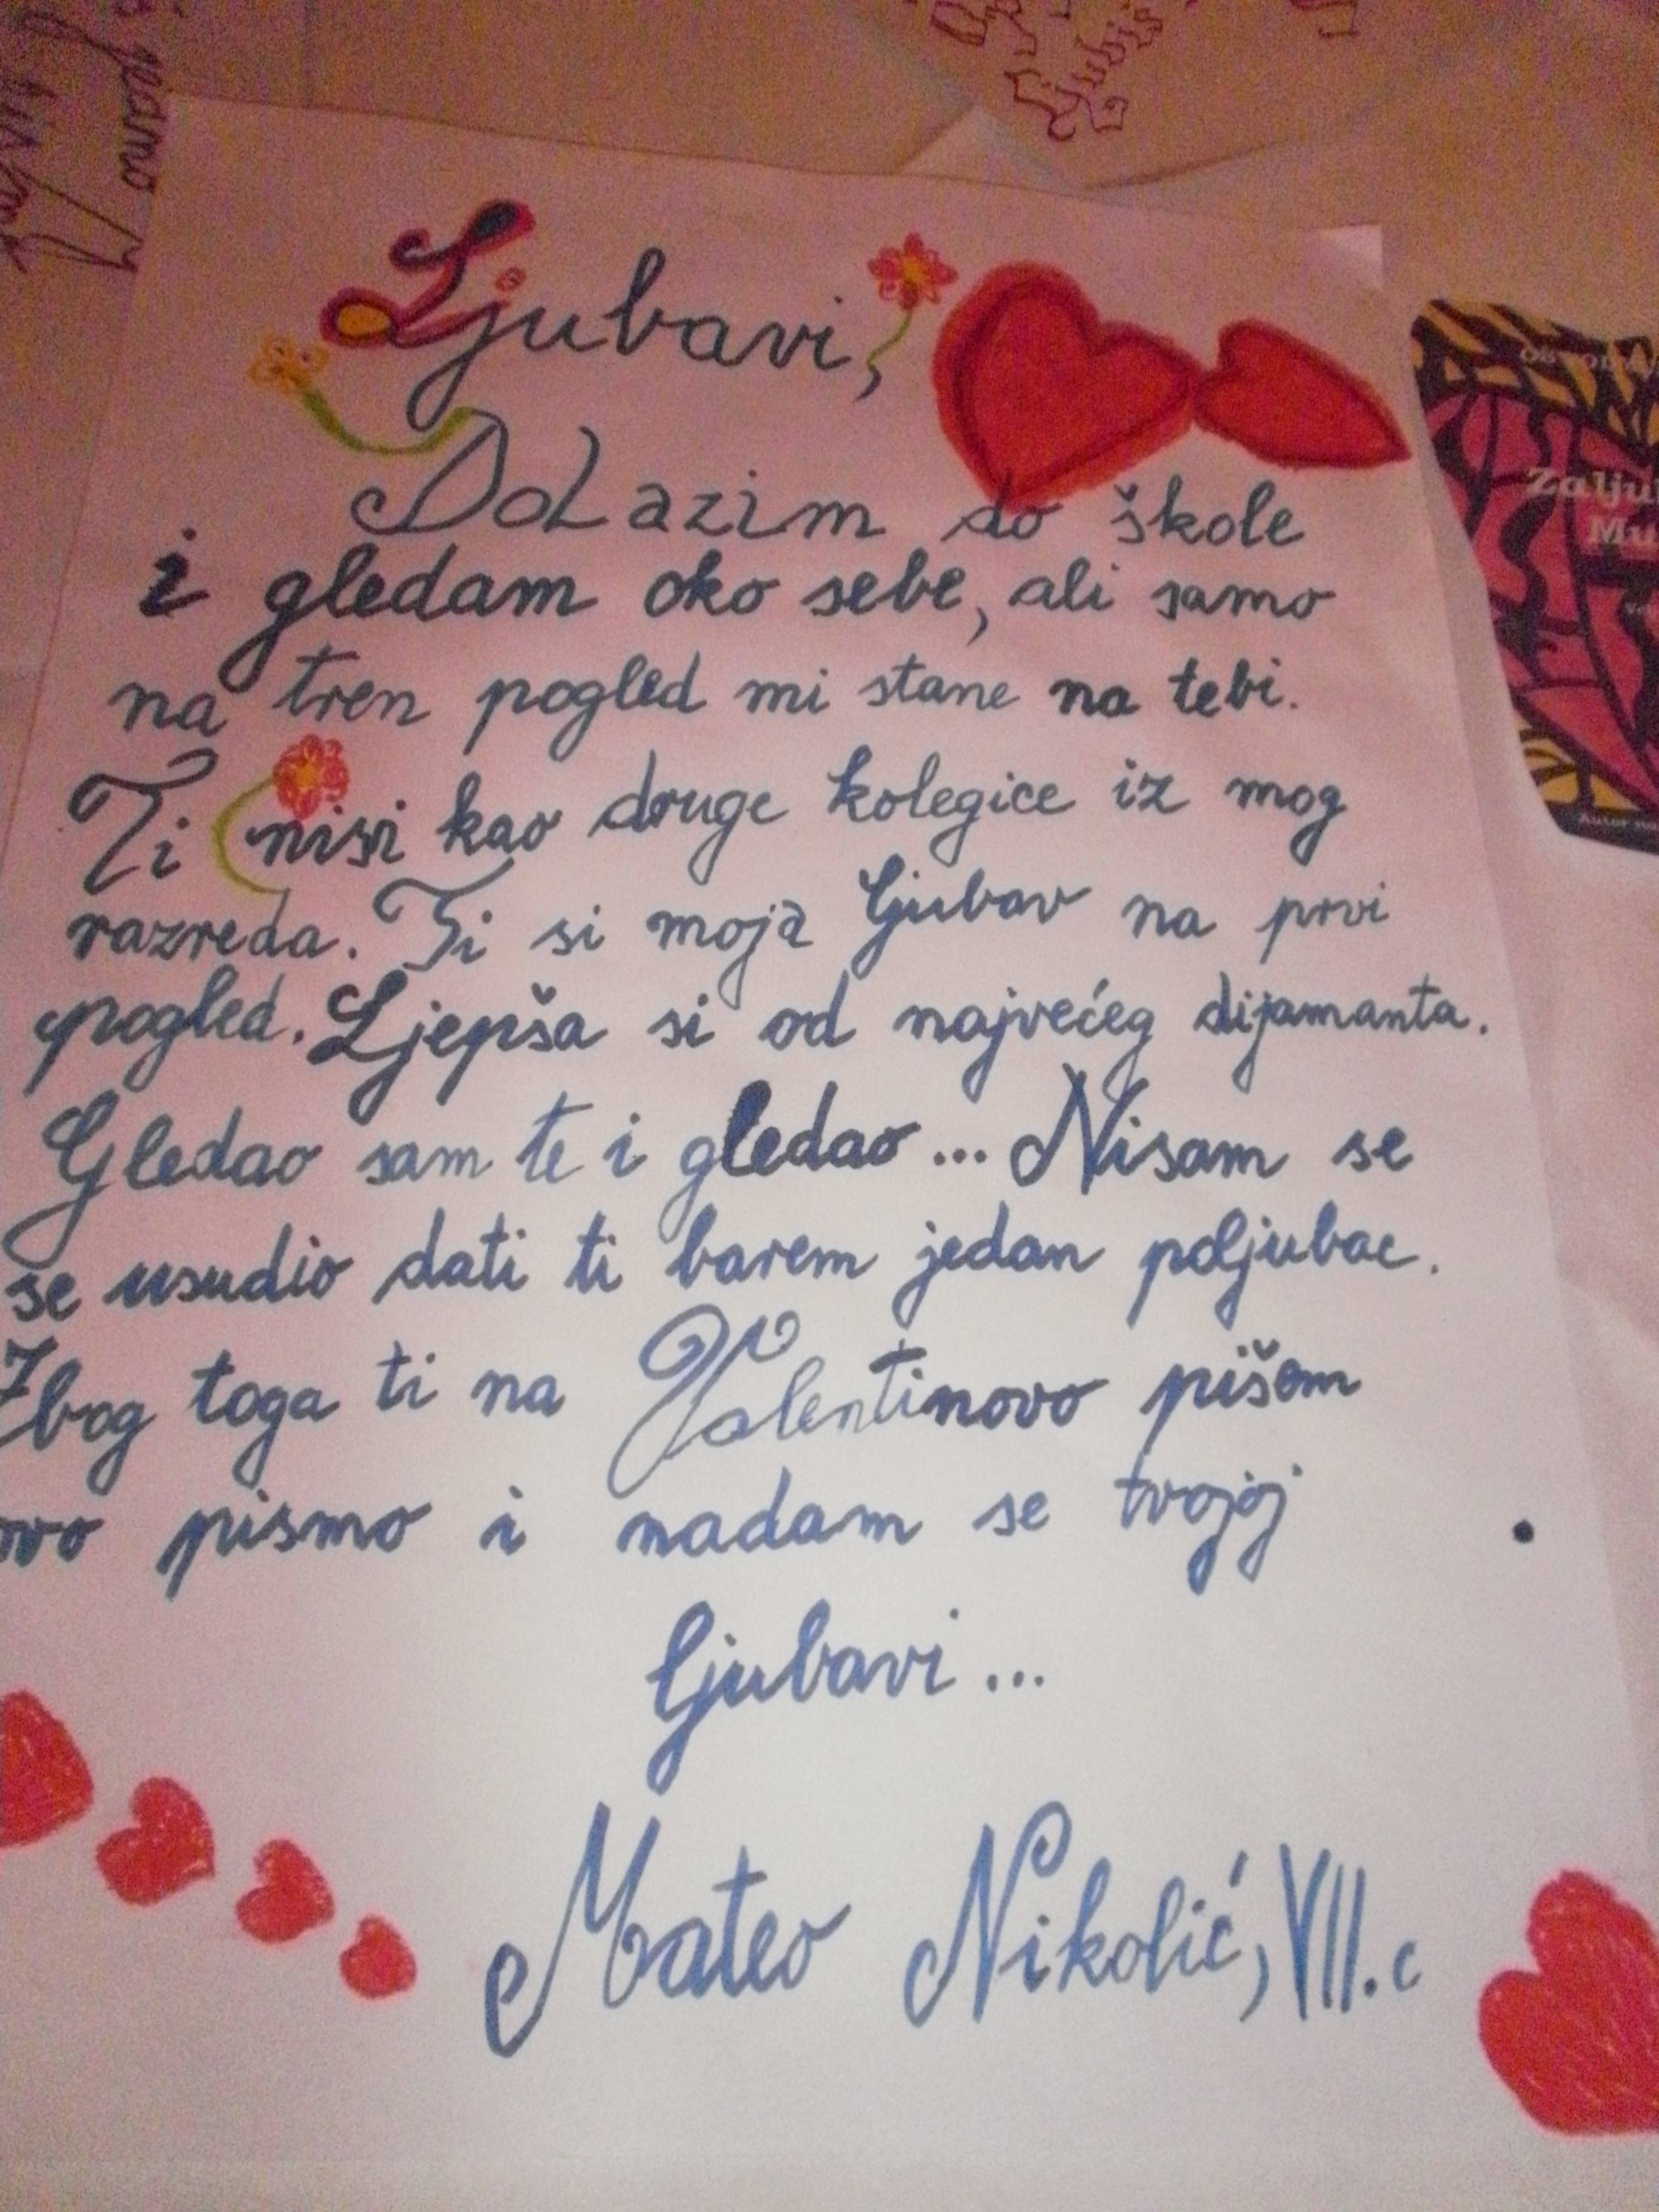 Ljubavi,
DoLazim do škole
i gledam oko sebe, ali samo
na tren pogled mi stane na tebi.
Ti nisi kao druge kolegice iz mog
razreda. Ti si moja ljubav na prvi
pogled. Ljepša si od najvećeg dijamanta.
Gledao sam te i gledao... Nisam se
se usudio dati ti barem jedan poljubac.
Zbog toga ti na Valentinovo pišem
ovo pismo i nadam se tvojoj
ljubavi...
Mateo Nikolić, VII. c